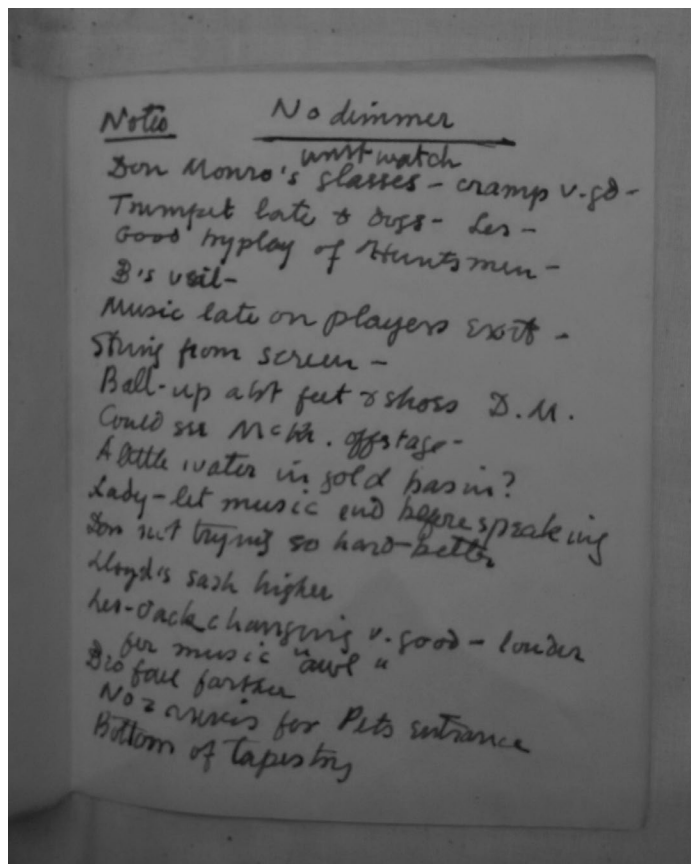 Notes No dimmer
wrist watch
Don Monro's glasses - cramp v.gd -
Trumpet late & dogs - Les -
Good byplay of Huntsmen -
B's veil -
Music late on players exit -
String from screen -
Ball-up abt feet & shoes D.M.
Could see McKK. offstage -
A little water in gold basin?
Lady - let music end before speaking
Don not trying so hard - better
Lloyd's sash higher
Les - Jack changing v. good - louder
for music "awl"
fall farther
No 2 for Pets entrance
Bottom of tapestry